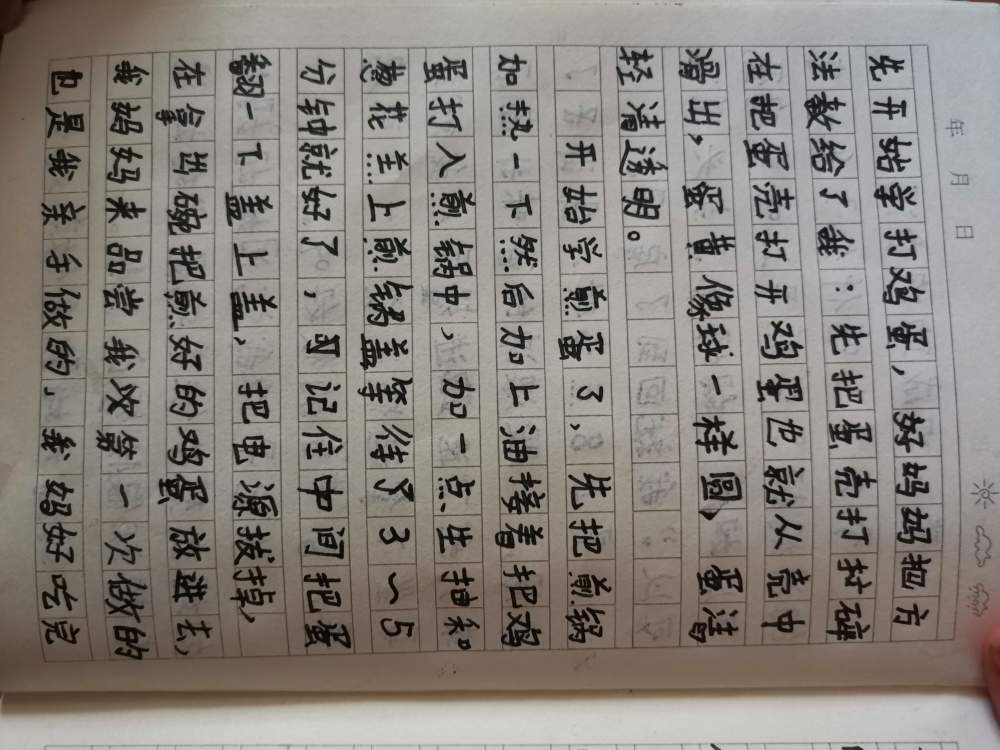 年 月 日
先开始学打鸡蛋,好妈妈把方
法教给了我:先把蛋壳打碎
在把蛋壳打开鸡蛋也就从壳中
滑出,蛋黄像球一样圆,蛋清
轻清透明。
开始学煎蛋了,先把煎锅
加热一下然后加上油接着把鸡
蛋打入煎锅中,加一点生抽和
葱花盖上煎锅盖等待了3~5
分钟就好了,可记住中间把蛋
翻一下盖上盖,把电源拔掉,
在拿出碗把煎好的鸡蛋放进去,
我妈妈来品尝我次第一次做的
也是我亲手做的」我妈好吃完